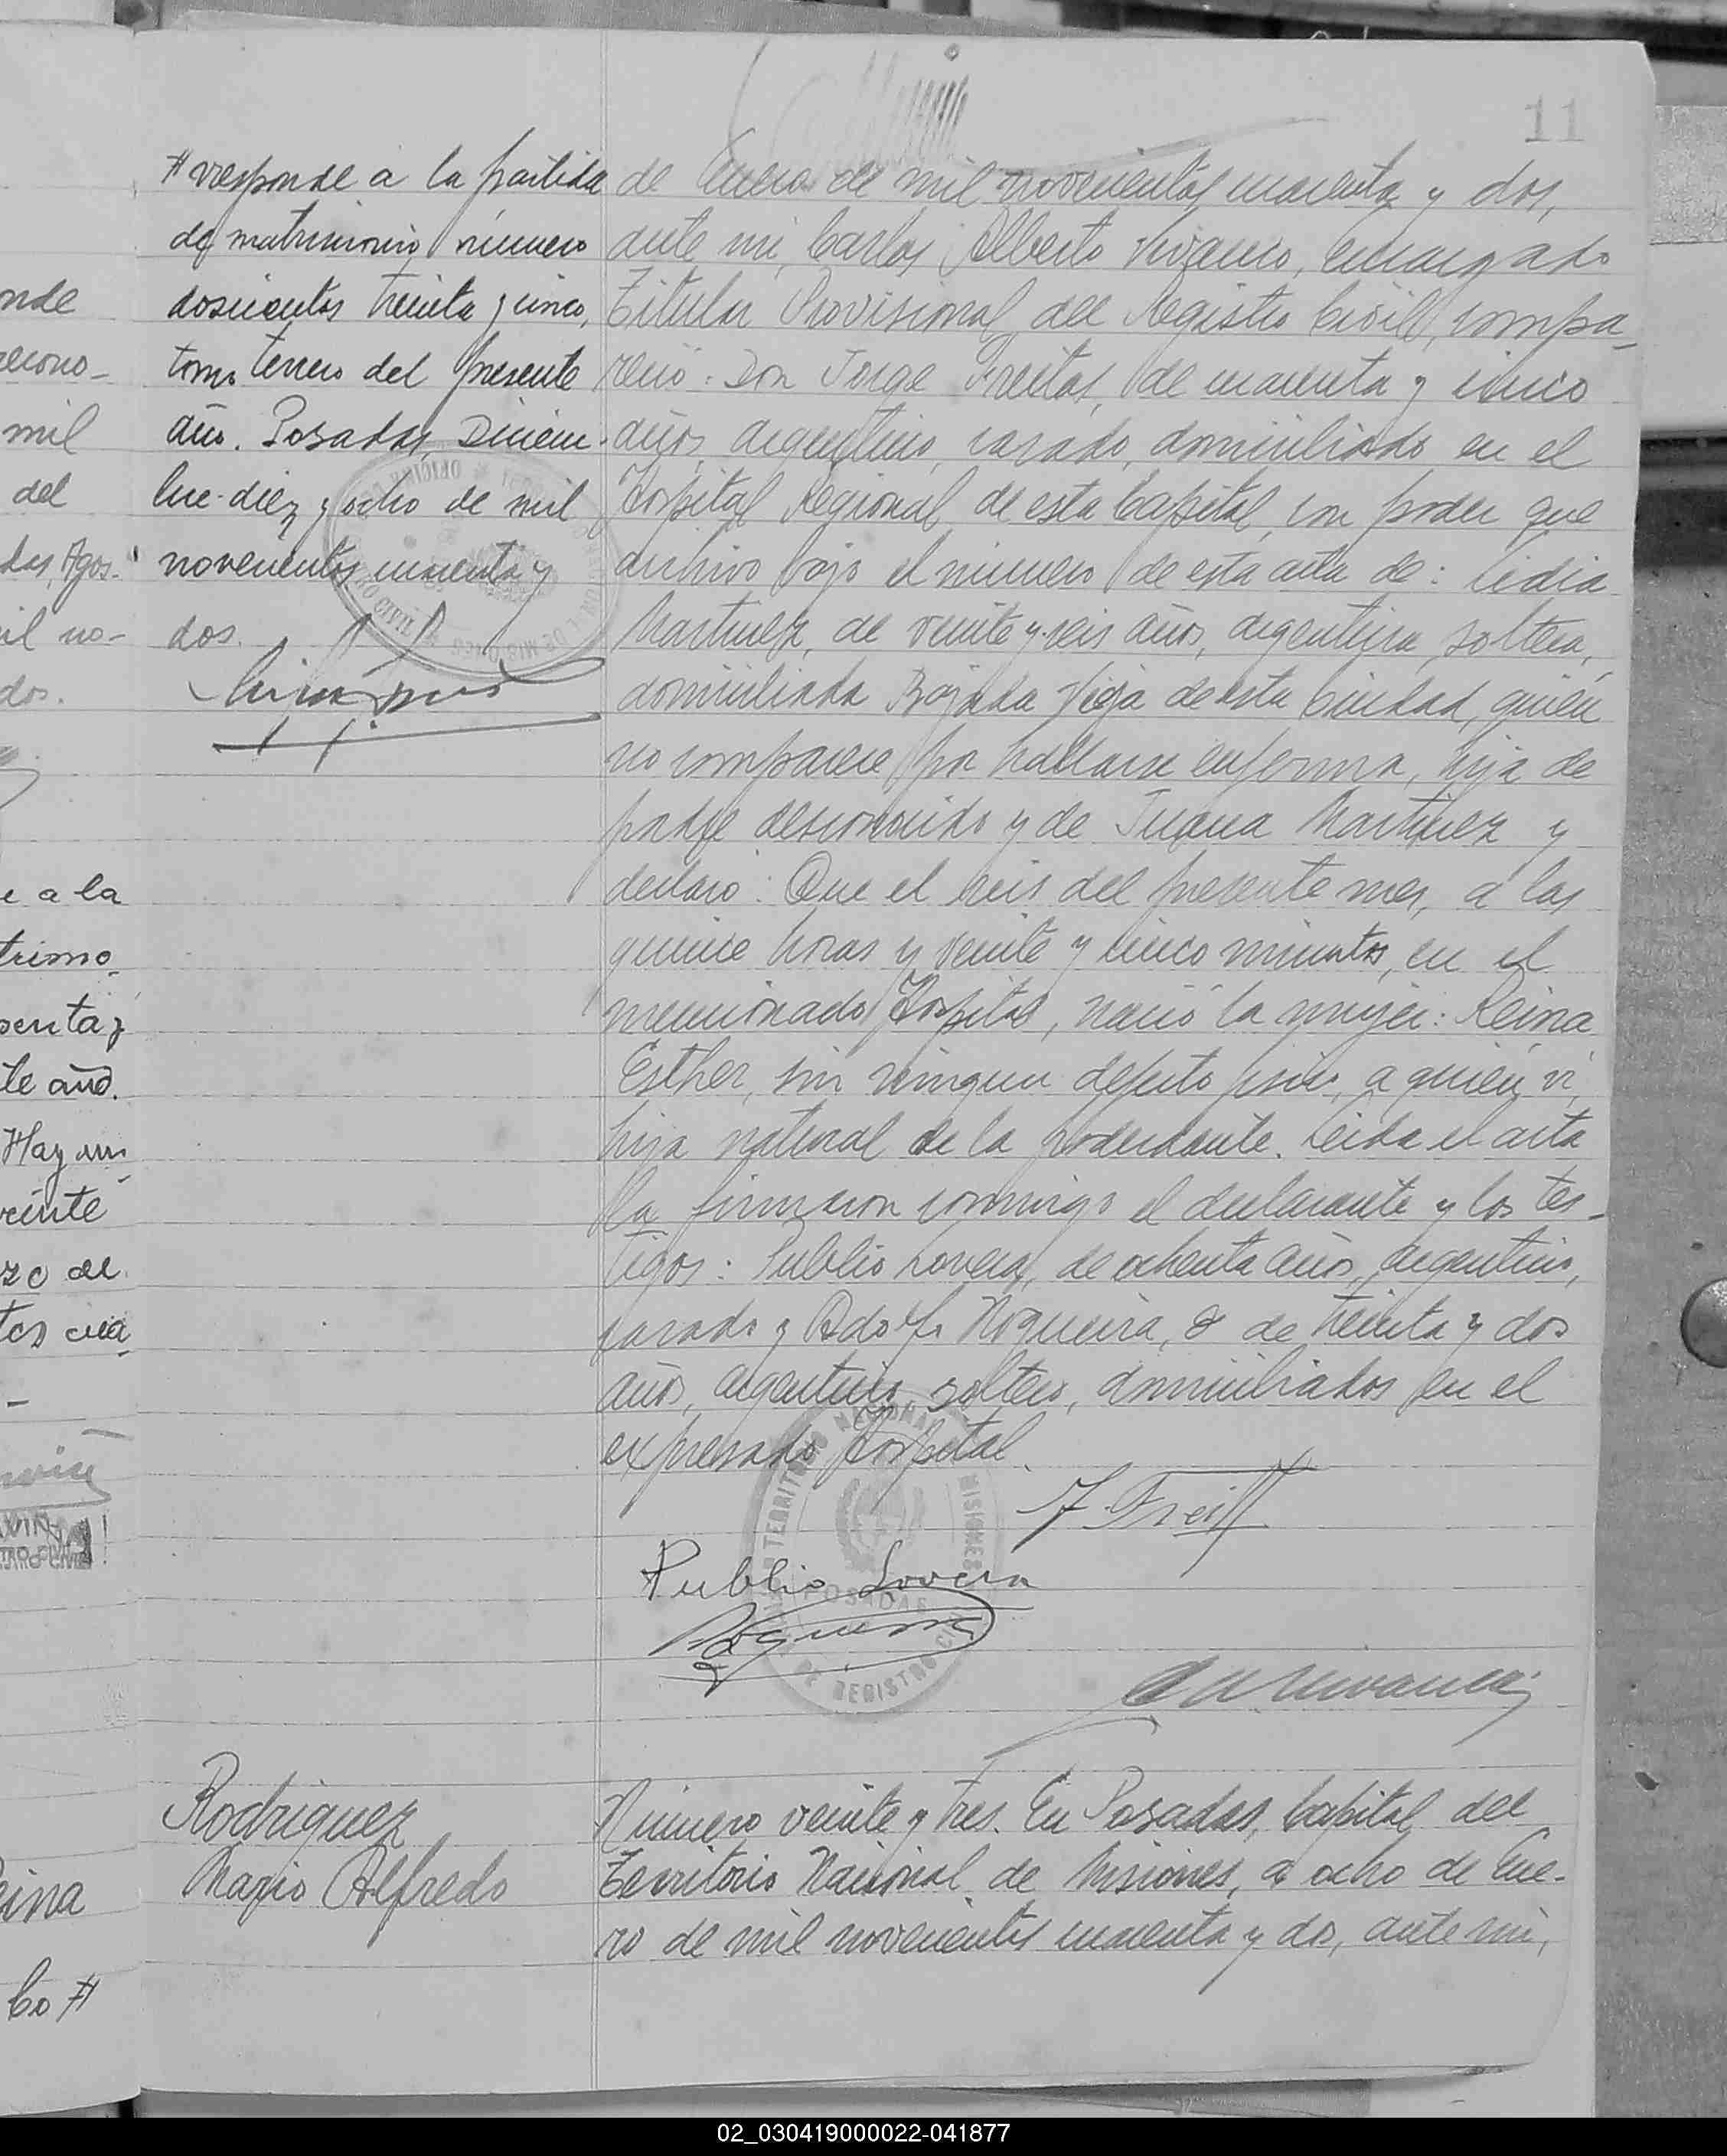 11
onde
recono-
mil
del
das, Agos-
mil no-
dos.
e a la
trimo
senta y
te año.
Hay un
veinte
zo de
tos cua
-
eina
Co #
# rresponde a la partida
de matrimonio número
doscientos treinta y cinco,
tomo tercero del presente
año. Posadas, Diciem-
bre diez y ocho de mil
novecientos cuarenta y
dos.
de Enero de mil novecientos cuarenta y dos,
ante mí, Carlos Alberto Vivanco, encargado
Titular Provisional del Registro Civil, compa-
reció: Don Jorge Freitas, de cuarenta y cinco
años, argentino, casado, domiciliado en el
Hospital Regional de esta Capital, con poder que
archivo bajo el número de esta acta de: Lidia
Martinez, de veinte y seis años, argentina, soltera,
domiciliada Bajada Vieja de esta Ciudad, quién
no comparece por hallarse enferma, hija de
padre desconocido y de Juana Martinez y
declaró: Que el seis del presente mes, a las
quince horas y veinte y cinco minutos, en el
mencionado Hospital, nació la mujer: Reina
Esther, sin ningun defecto físico, a quién ví,
hija natural de la poderdante. Leida el acta
la firmaron conmigo el declarante y los tes-
tigos: Publio Lovera, de ochenta años, argentino,
casado y Adolfo Nogueira, de treinta y dos
años, argentino, soltero, domiciliados en el
expresado Hospital.
J. Freitas
Publio Lovera
Nogueira
TERRITORIO NACIONAL MISIONES
POSADAS
DE REGISTRO CIVIL
CA Vivanco
Rodriguez
Mario Alfredo
Número veinte y tres. En Posadas, Capital del
Territorio Nacional de Misiones, a ocho de Ene-
ro de mil novecientos cuarenta y dos, ante mí,
02_030419000022-041877